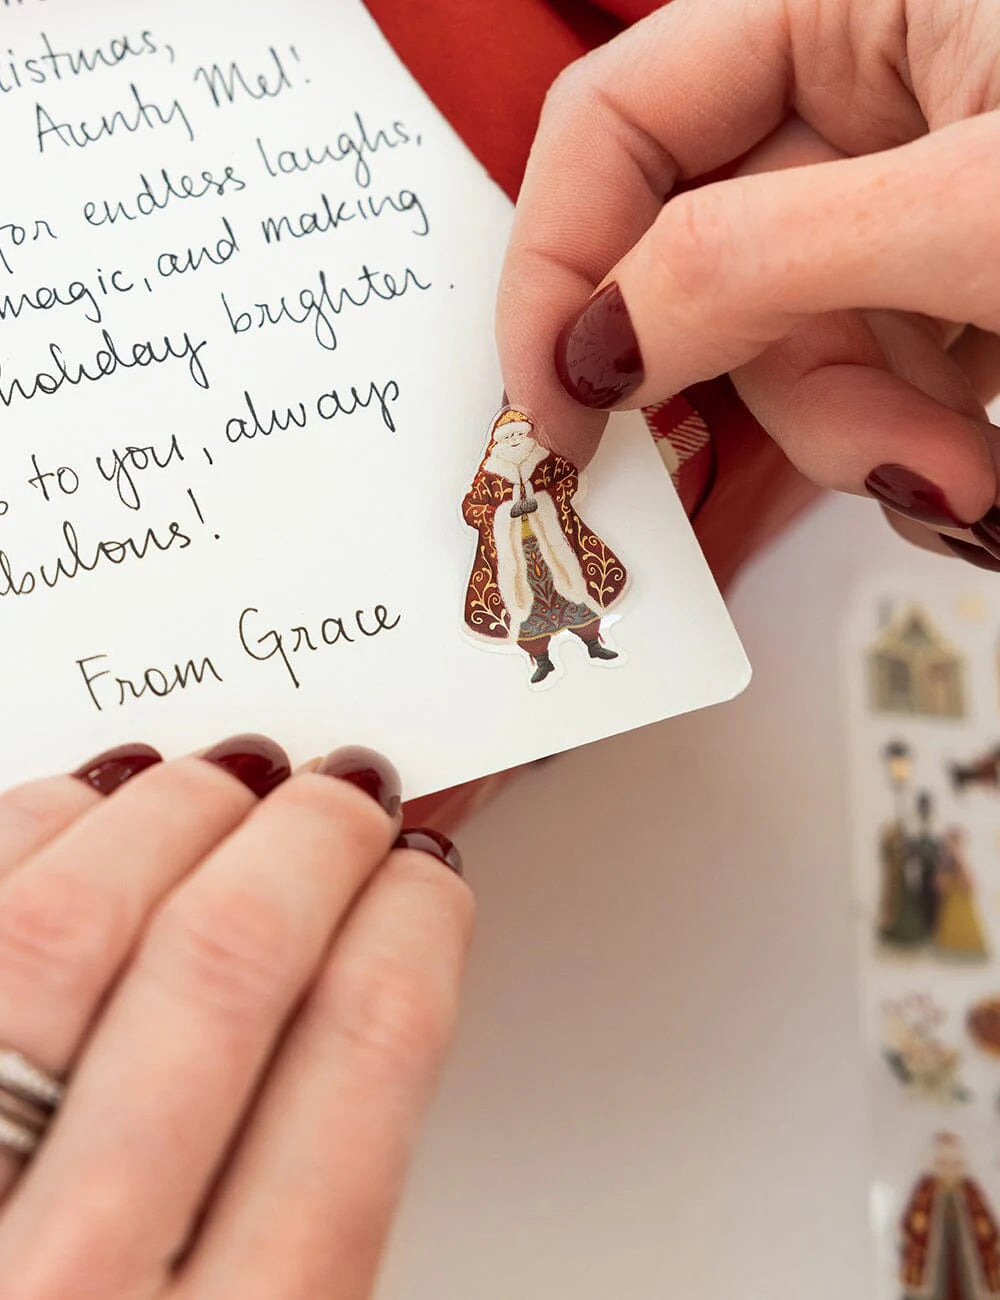 istmas,
Aunty Mel!
for endless laughs,
magic, and making
holiday brighter.
to you, always
bulous!
From Grace